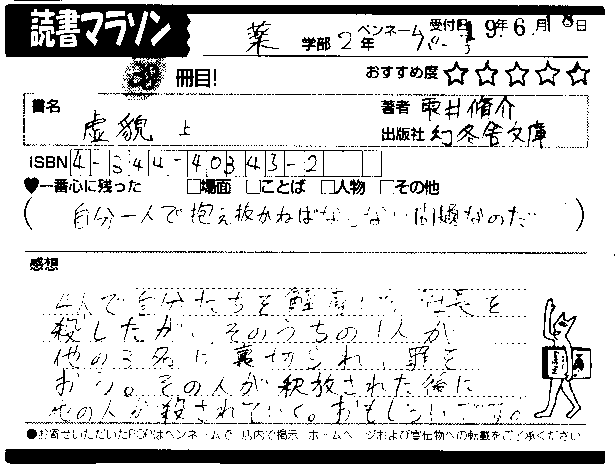 読書マラソン
薬 学部 2年 ペンネーム 受付日 19年6月18日
39冊目!
おすすめ度 ☆☆☆☆☆
書名 虚貌 上
著者 雫井脩介
出版社 幻冬舎文庫
ISBN 4-344-40343-2
♥一番心に残った □場面 □ことば □人物 □その他
(自分一人で抱え抜かねばならない問題なのだ)
感想
4人で自分たちを解雇した社長を
殺したが、そのうちの1人が
他の3名に裏切られ、罪を
おう。その人が釈放された後に
他の人が殺されていく。おもしろいです。
●お寄せいただいたPOPはペンネームで店内で掲示 ホームページおよび宣伝物への転載をご了承ください